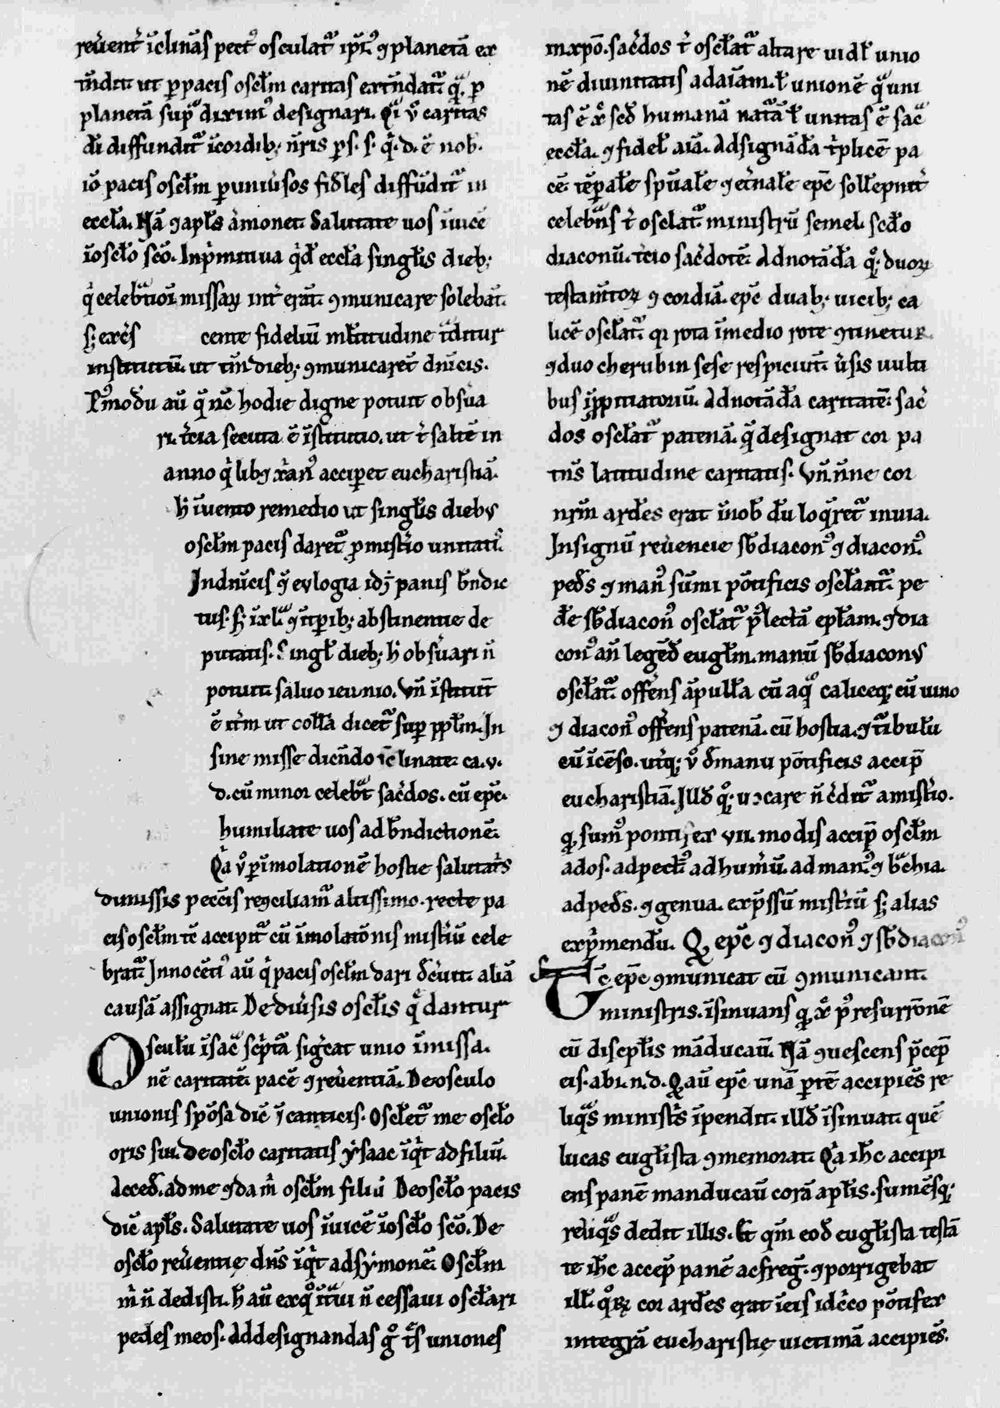 reuēnt̄ īclināſ pect' oſculat᷑ ip̄i' ꝯplanetā ex
tēndit ut ꝑ pacis oſc̄lm caritas extēndat᷑ q̄ ꝑ
planetā sup᷑ diximꝰ deſignari. Q̄i v̊ caritas
d̄i diffundit᷑ ī cordib; n̄ris ꝑ s. s. q̄. d. ē nob.
iō pacis oſc̄lm ꝑ uniūſos fid̄les diffūdit᷑ in
eccl̄a. Nā ⁊ apl̄s āmonet. Salutate uos īuicē
ī oſcl̄o ſc̄o. In p̄mitiua q̄d eccl̄a ſingl̄is dieb;
q̄ celeb̄tioī miſſaꝝ int̄erāt. ꝯmunicare ſolebāt.
ſ; creſ cente fideliū ml̄titudine t̄ditur
inſtitutū ut tm̄ dieb; ꝯmunicarēt dn̄icis.
P'modū aū q̄ n̄c hodie digne potuit obſūa
ri. t̄cia ſecuta ē īſtitutio. ut t̄ ſaltē in
anno q̄libꝫ x̄ianꝰ accip̄et euchariſtiā.
h̄ īuento remedio ut ſingl̄is diebꝰ
oſc̄lm pacis daret᷑ ꝓ miſt̄io unitatiſ.
In dn̄icis ū eulogia id; panis b̄ndic
tuſ. ſ; ī xl᷑ ꝯt̄ꝑib; abſtinentie de
putatiſ. Singl̄ dieb; h̄ obſūari n̄
potuit ſaluo ieiunio. Vn̄ īſtitut᷑
ē itm̄ ut coll̄a dicet᷑ ſup᷑ pp̄lm. In
fine miſſe dicn̄do īclinate ca. v.
d. cū minor celeb̄t ſac̄dos. cū ep̄c.
humiliate uos ad b̄ndictionē.
Q̄a v̊ ꝑ īmolationē hoſtie ſalutar̄s
dimiſſis pecc̄is recōciliam᷑ altiſſimo. recte pa
cis oſc̄lm tc̄ accipit᷑ cū īmolatōnis miſt̄iū cele
brat᷑. Innocētiꝰ aū q̄ pacis oſc̄lm dari d̄cuit aliā
cauſā aſſignat. De diūſis oſcl̄is q̄ dantur
Oſculū ī ſac᷑ ſcp̄tā ſigc̄at unio ī miſſa.
nē caritatē pacē ⁊ reūentiā. De oſculo
unionis ſpōſa dic̄ ī canticis. Oſclet᷑ me oſcl̄o
oris ſui. de oſcl̄o caritatis yſaac īq̄t ad filiū.
Acced̄. ad me ⁊ da m̄ oſc̄lm fili ū De oſcl̄o pacis
dic̄ apl̄s. Salutate uos īuicē ī oſcl̄o ſc̄o. De
oſcl̄o reūentie dn̄s īq̄t ad ſymonē. Oſc̄lm
m̄ n̄ dediſti. h̄ aū ex q̊ ītui n̄ ceſſauit oſcl̄ari
pedes meos. Ad deſignandas g̊ t̄s uniones
in xp̄o. ſac̄dos t̄ oſc̄lat᷑ altare uidl̄ unio
nē diuinitatis ad aīam. ł unionē q᷑ uni
tas ē x̄ ſcd̄ō humanā nat᷑ā ł unitas ē ſac᷑
eccl̄a. ⁊ fidel̄ aīa. Ad ſignād̄a t̄plicē pa
cē. tēꝑale ſpūale ⁊ et̄nale ep̄c ſollepnit̄
celebn̄s t̄ oſc̄lat᷑ miniſtrū ſemel. ſcd̄o
diaconū. t̄cio ſac̄dotē. Ad notād̄a q̊; duoꝝ
teſtam̄toꝝ ꝯcordiā. ep̄c duab; uicib; ca
licē oſc̄lat᷑. q̄i rota ī medio rote ꝯtinetur.
⁊ duo cherubin ſeſe reſpiciūt ūſis uulti
bus ī ꝓpitiatoriū. Ad notād̄a caritatē ſac̄
dos oſc̄lat᷑ patenā. q̄ deſignat cor pa
tn̄s latitudine caritatiſ. Vn̄ n̄ne cor
nr̄m ard̄es erat ī nob̄ dū loq̄ret᷑ in uia.
In ſignū reūencie ſb̄diaconꝰ ⁊ diaconꝰ
ped̄s ⁊ manꝰ ſūmi pōtificis oſc̄lant᷑. pe
d̄e ſb̄diaconꝰ oſc̄lat᷑ p̄ lectā epl̄am. ⁊ dia
conꝰ an̄ legēd̄ eugl̄m. manū ſb̄diaconꝰ
oſc̄lat᷑ offēns āpull̄a cū aq᷑ caliceq; cū uino
⁊ diaconꝰ offēns patenā. cū hoſtia. ⁊ t᷑ibulū
cū īcēſo. ut̄q; v̊ d̄ manu pōtificis accip̄
euchariſtiā. Ill̄d q̊; uacare n̄ c̄dit᷑ a miſt̄io.
q̄ ſumꝰ pontifex vii. modis accip̄ oſc̄lm
ad os. ad pectꝰ ad hum̄ū. ad manꝰ ⁊ b᷑chia.
ad ped̄s. ⁊ genua. exp̄ſſū miſt̄iū ſ; alias
exp̄mendū. Q̄ ep̄c ⁊ diaconꝰ ⁊ ſb̄diaconꝰ
Tc̄ ep̄c ꝯmunicat cū ꝯmunicant
miniſtris. īſinuans q̄ x̊ p̄ reſurr̄onē
cū diſcipl̄is māducaū. Nā ꝯueſcens p̄cep̄
eis. ab i. n. d. Q̄ aū ep̄c unā p̄tē accipiēs re
liq᷑s miniſt̄s īpendit. ill̄d īſinuat quē
lucas eugl̄iſta ꝯmemorat. Q̄a ih̄c accipi
ens panē manducaū corā apl̄is. ſumēſq;
reliq᷑s dedit illis. Et q̄m eod̄ eugl̄iſta teſtā
te ih̄c accep̄ panē ac freḡ. ⁊ porrigebat
ill̄. q̊ꝝ cor ard̄es erat ī eis idc̄co pōtifex
integrā euchariſtie uictimā accipiēs.